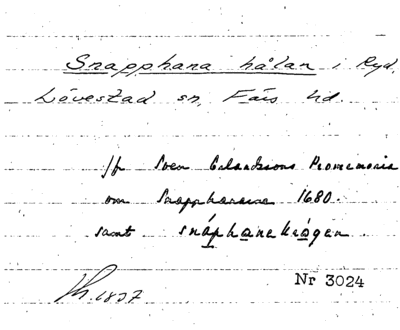 Snapphana hålan i Ryd.
Lövestad sn, Färs hd.
jfr Sven Erlandsons Promemoria
om Snapphanarne 1680.
samt snáphanekrógen.
Nr 3024